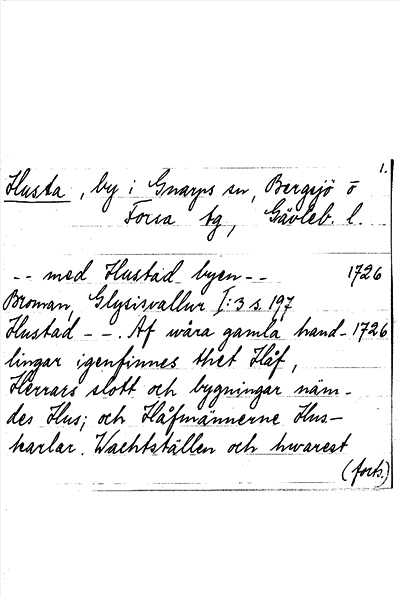 1.
Husta, by i Gnarps sn, Bergsjö o
Forsa tg, Gävleb. l.
-- med Hustad byen -- 1726
Broman, Glysisvallur I:3 s. 197
Hustad --. Af wåra gamla hand- 1726
lingar igenfinnes thet Håf,
Herrars slott och bygningar näm-
des Hus; och Håfmännerne Hus-
karlar. Wachtställen och hwarest
(forts.)